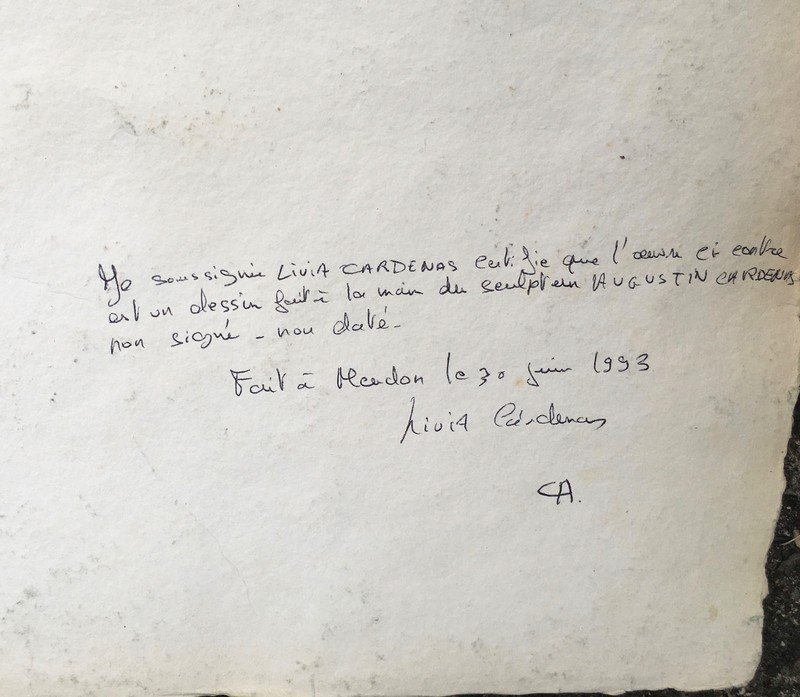 Je soussignée LIVIA CARDENAS certifie que l'œuvre ci contre
est un dessin fait à la main du sculpteur AUGUSTIN CARDENAS
non signé - non daté -
Fait à Meudon le 30 juin 1993
Livia Cárdenas
CA.